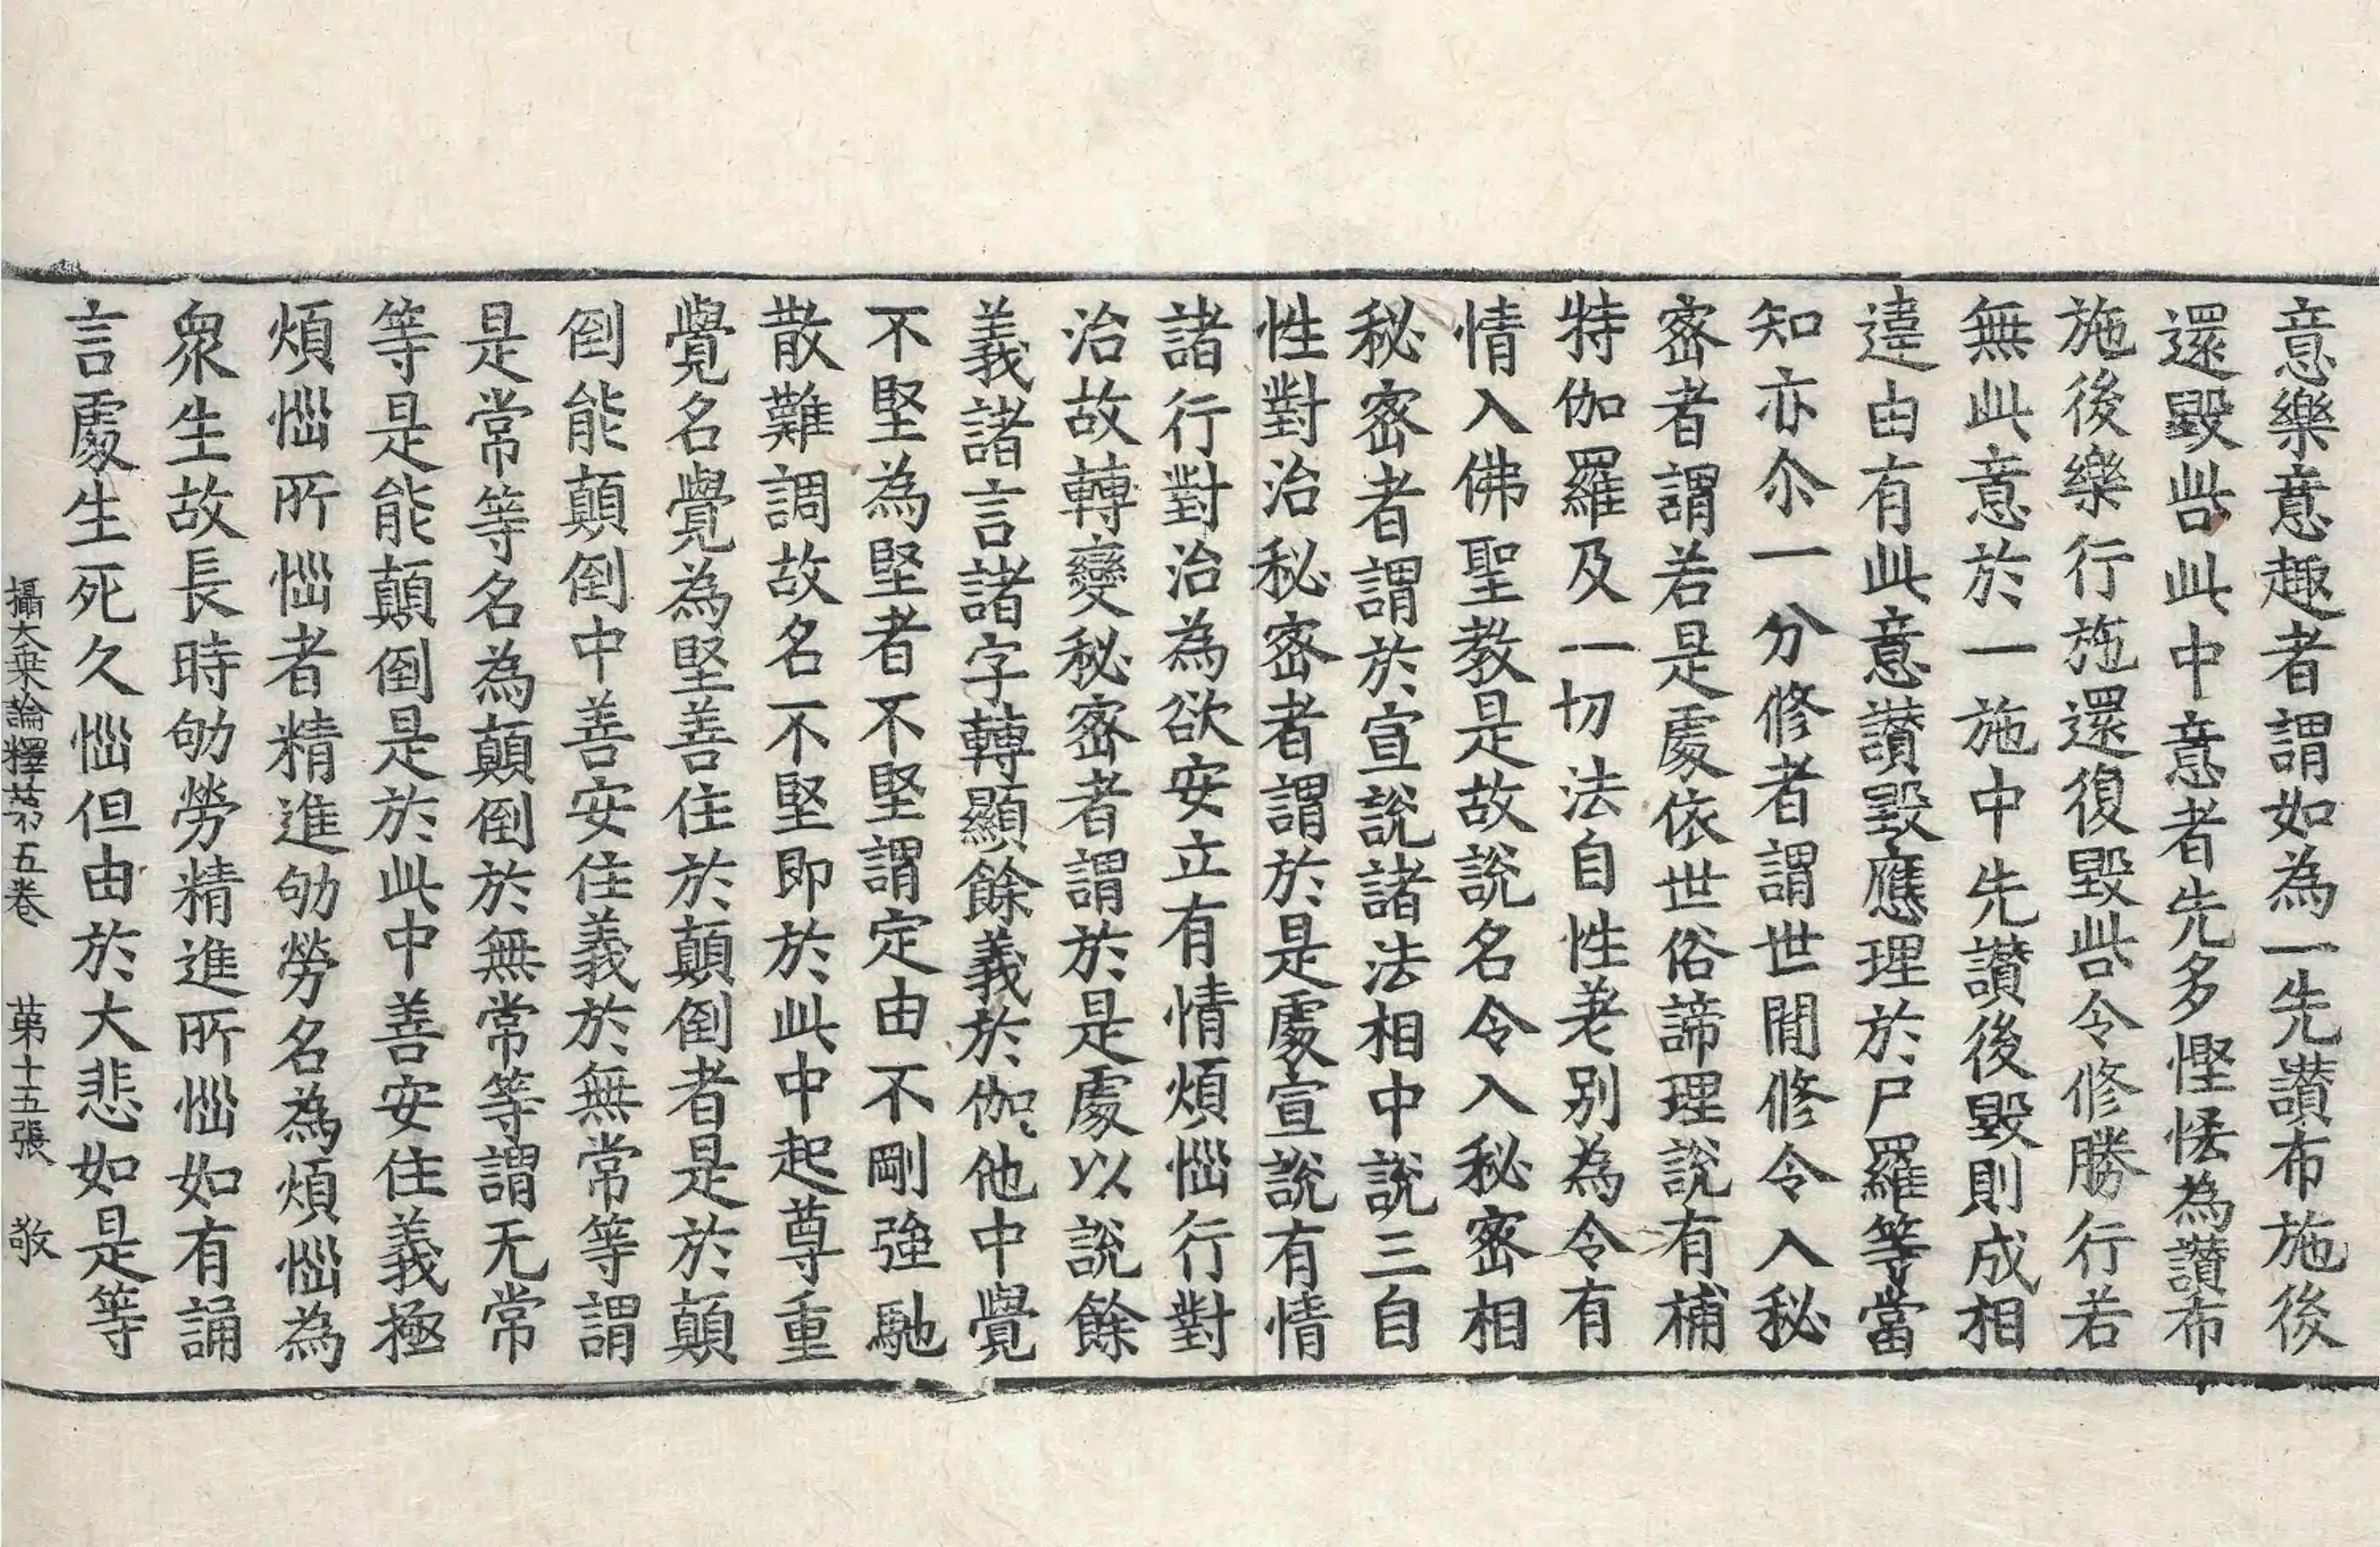 意樂意趣者謂如為一先讚布施後
還毀呰此中意者先多慳悋為讚布
施後樂行施還復毀呰令修勝行若
無此意於一施中先讚後毀則成相
違由有此意讚毀應理於尸羅等當
知亦尒一分修者謂世間修令入秘
密者謂若是處依世俗諦理說有補
特伽羅及一切法自性差別為令有
情入佛聖教是故說名令入秘密相
秘密者謂於宣說諸法相中說三自
性對治秘密者謂於是處宣說有情
諸行對治為欲安立有情煩惱行對
治故轉變秘密者謂於是處以說餘
義諸言諸字轉顯餘義於伽他中覺
不堅為堅者不堅謂定由不剛強馳
散難調故名不堅即於此中起尊重
覺名覺為堅善住於顛倒者是於顛
倒能顛倒中善安住義於無常等謂
是常等名為顛倒於無常等謂无常
等是能顛倒是於此中善安住義極
煩惱所惱者精進劬勞名為煩惱為
衆生故長時劬勞精進所惱如有誦
言處生死久惱但由於大悲如是等
攝大乗論釋苐五卷 苐十五張 敬